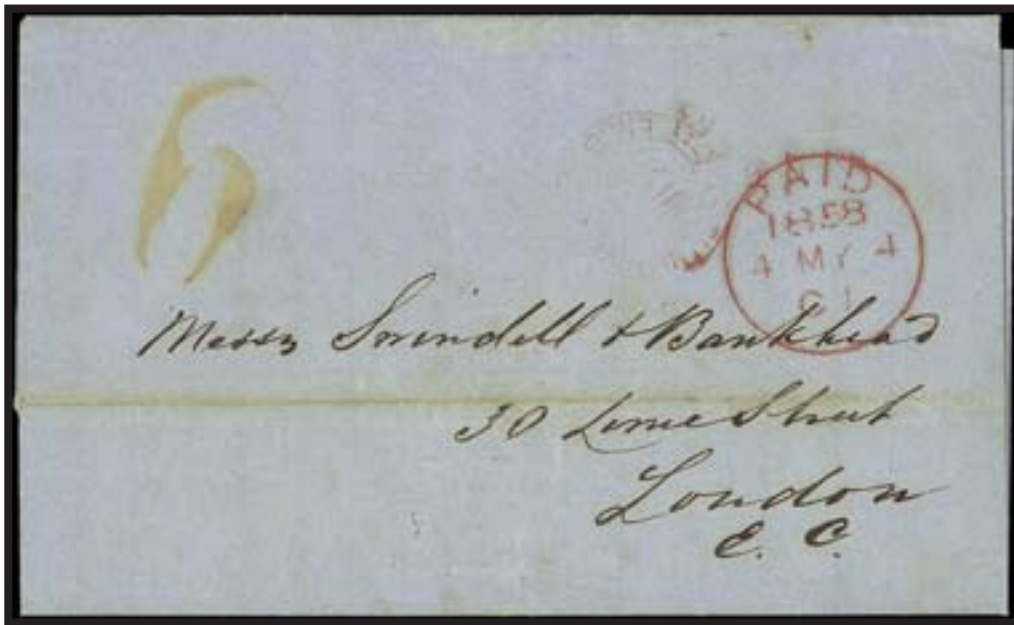 PAID
1858
4 MY 4
Messrs Swindell & Bankhead
30 Lime Street
London
E. C.